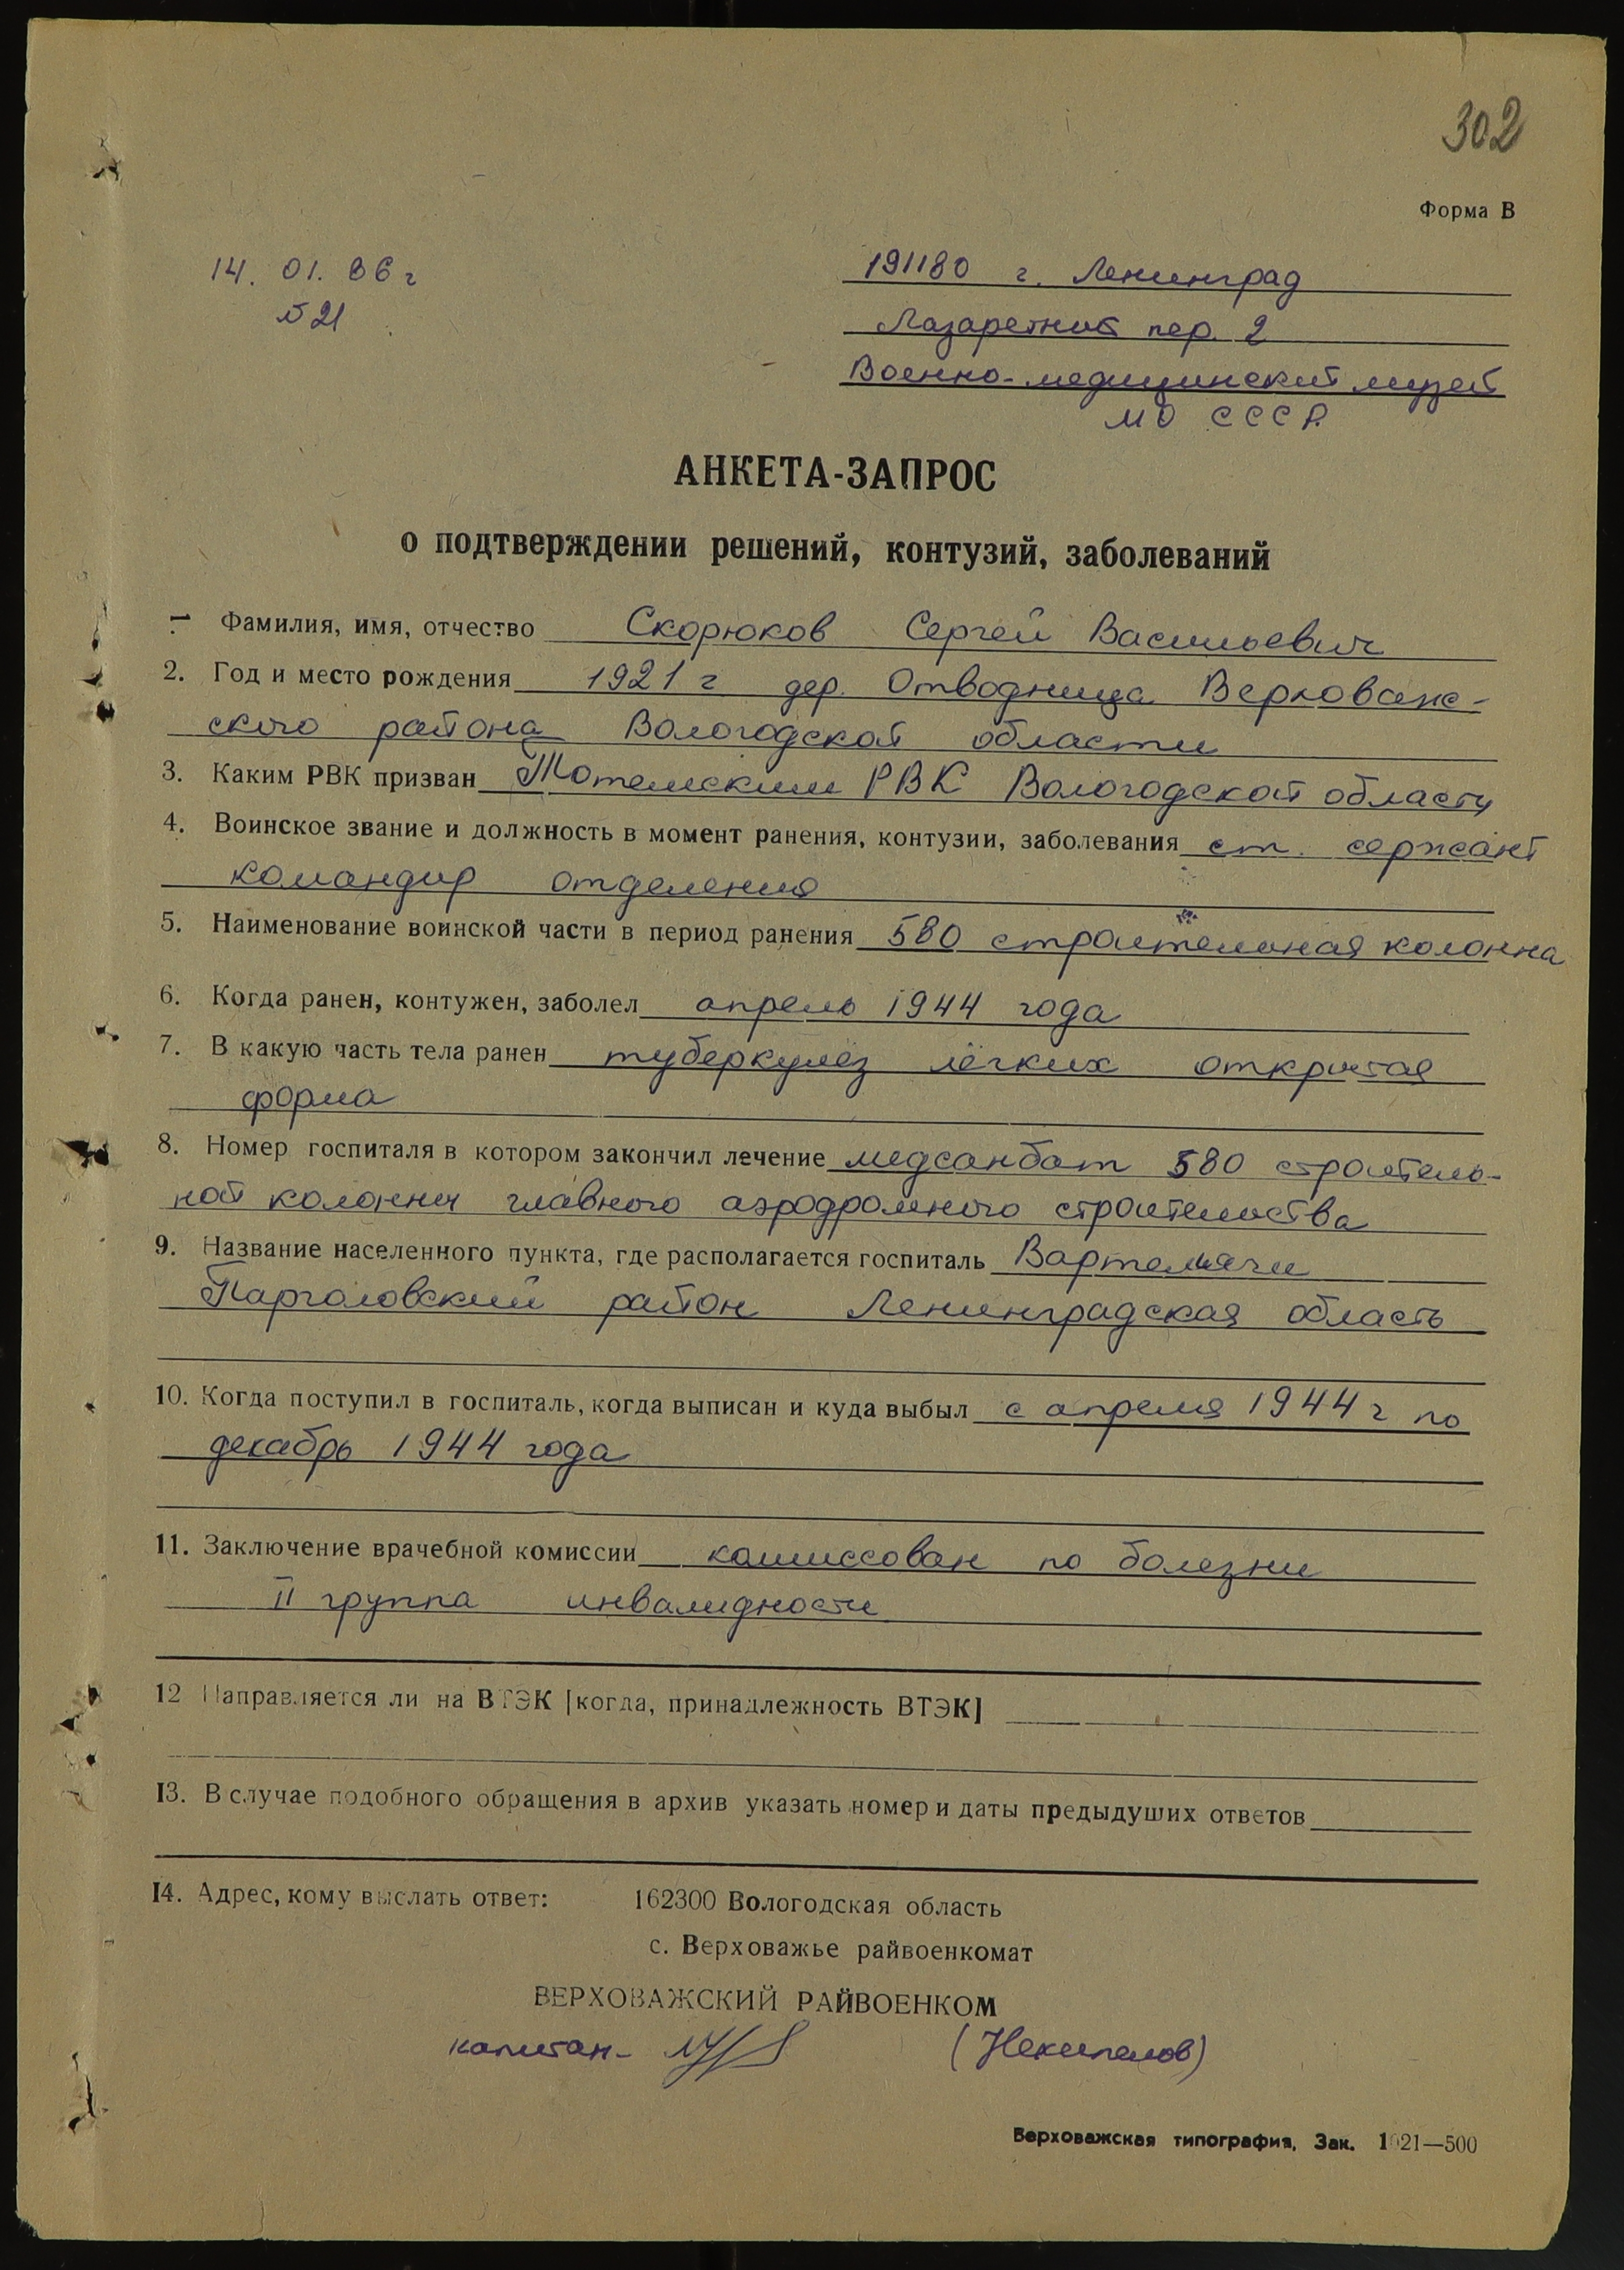 302
Форма В
14. 01. 86 г
№ 21
191180 г. Ленинград
Лазаретний пер. 2
Военно-медицинский музей
МО СССР.
АНКЕТА-ЗАПРОС
о подтверждении решений, контузий, заболеваний
1. Фамилия, имя, отчество Скорюков Сергей Васильевич
2. Год и место рождения 1921 г дер. Отводница Верховаж-
ского района Вологодской области
3. Каким РВК призван Тотемским РВК Вологодской области
4. Воинское звание и должность в момент ранения, контузии, заболевания ст. сержант
командир отделения
5. Наименование воинской части в период ранения 580 строительная колонна
6. Когда ранен, контужен, заболел апрель 1944 года
7. В какую часть тела ранен туберкулёз лёгких открытая
форма
8. Номер госпиталя в котором закончил лечение медсанбат 580 строитель-
ной колонны главного аэродромного строительства
9. Название населенного пункта, где располагается госпиталь Вартемяги
Парголовский район Ленинградская область
10. Когда поступил в госпиталь, когда выписан и куда выбыл с апреля 1944 г по
декабрь 1944 года
11. Заключение врачебной комиссии комиссован по болезни
II группа инвалидности
12 Направляется ли на ВТЭК [когда, принадлежность ВТЭК]
13. В случае подобного обращения в архив указать номер и даты предыдуших ответов
14. Адрес, кому выслать ответ: 162300 Вологодская область
с. Верховажье райвоенкомат
ВЕРХОВАЖСКИЙ РАЙВОЕНКОМ
капитан- (Некипелов)
Верховажская типография, Зак. 1021—500